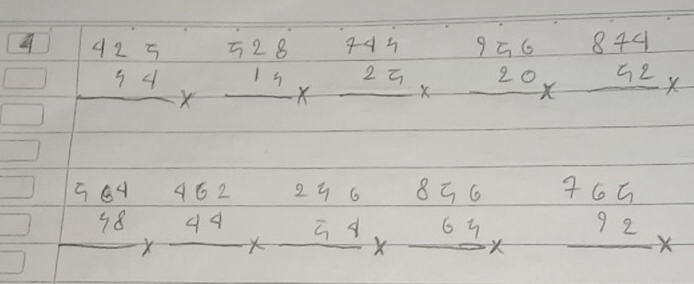 4 425 528 745 956 874
54 x 15 x 25 x 20 x 52 x
564 462 256 856 765
58 x 44 x 54 x 65 x 92 x